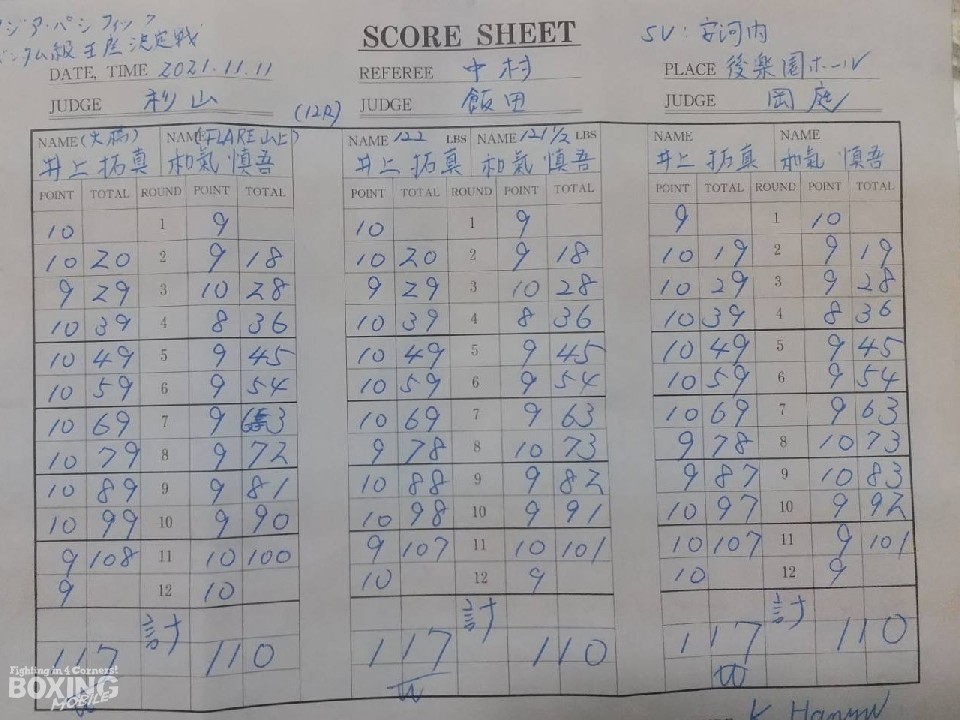 ジア・パシフィック
バンタム級王座決定戦
SCORE SHEET
SV：宇河内
DATE, TIME 2021.11.11
REFEREE 中村
PLACE 後楽園ホール
JUDGE 杉山 (12R)
JUDGE 飯田
JUDGE 岡庭
NAME (大橋) NAME (FLARE山上) NAME 122 LBS NAME 121 1/2 LBS NAME NAME
井上拓真 和氣慎吾 井上拓真 和氣慎吾 井上拓真 和氣慎吾
POINT TOTAL ROUND POINT TOTAL POINT TOTAL ROUND POINT TOTAL POINT TOTAL ROUND POINT TOTAL
10 1 9 10 1 9 9 1 10
10 20 2 9 18 10 20 2 9 18 10 19 2 9 19
9 29 3 10 28 9 29 3 10 28 10 29 3 9 28
10 39 4 8 36 10 39 4 8 36 10 39 4 8 36
10 49 5 9 45 10 49 5 9 45 10 49 5 9 45
10 59 6 9 54 10 59 6 9 54 10 59 6 9 54
10 69 7 9 63 10 69 7 9 63 10 69 7 9 63
10 79 8 9 72 9 78 8 10 73 9 78 8 10 73
10 89 9 9 81 10 88 9 9 82 9 87 9 10 83
10 99 10 9 90 10 98 10 9 91 10 97 10 9 92
9 108 11 10 100 9 107 11 10 101 10 107 11 9 101
9 12 10 10 12 9 10 12 9
計 計 計
117 110 117 110 117 110
W W W
Fighting in 4 Corners!
BOXING
MOBILE